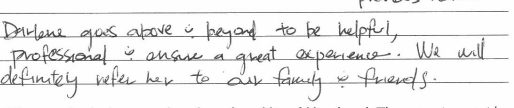 Darlene goes above & beyond to be helpful,
professional & ensure a great experience. We will
definitely refer her to our family & friends.